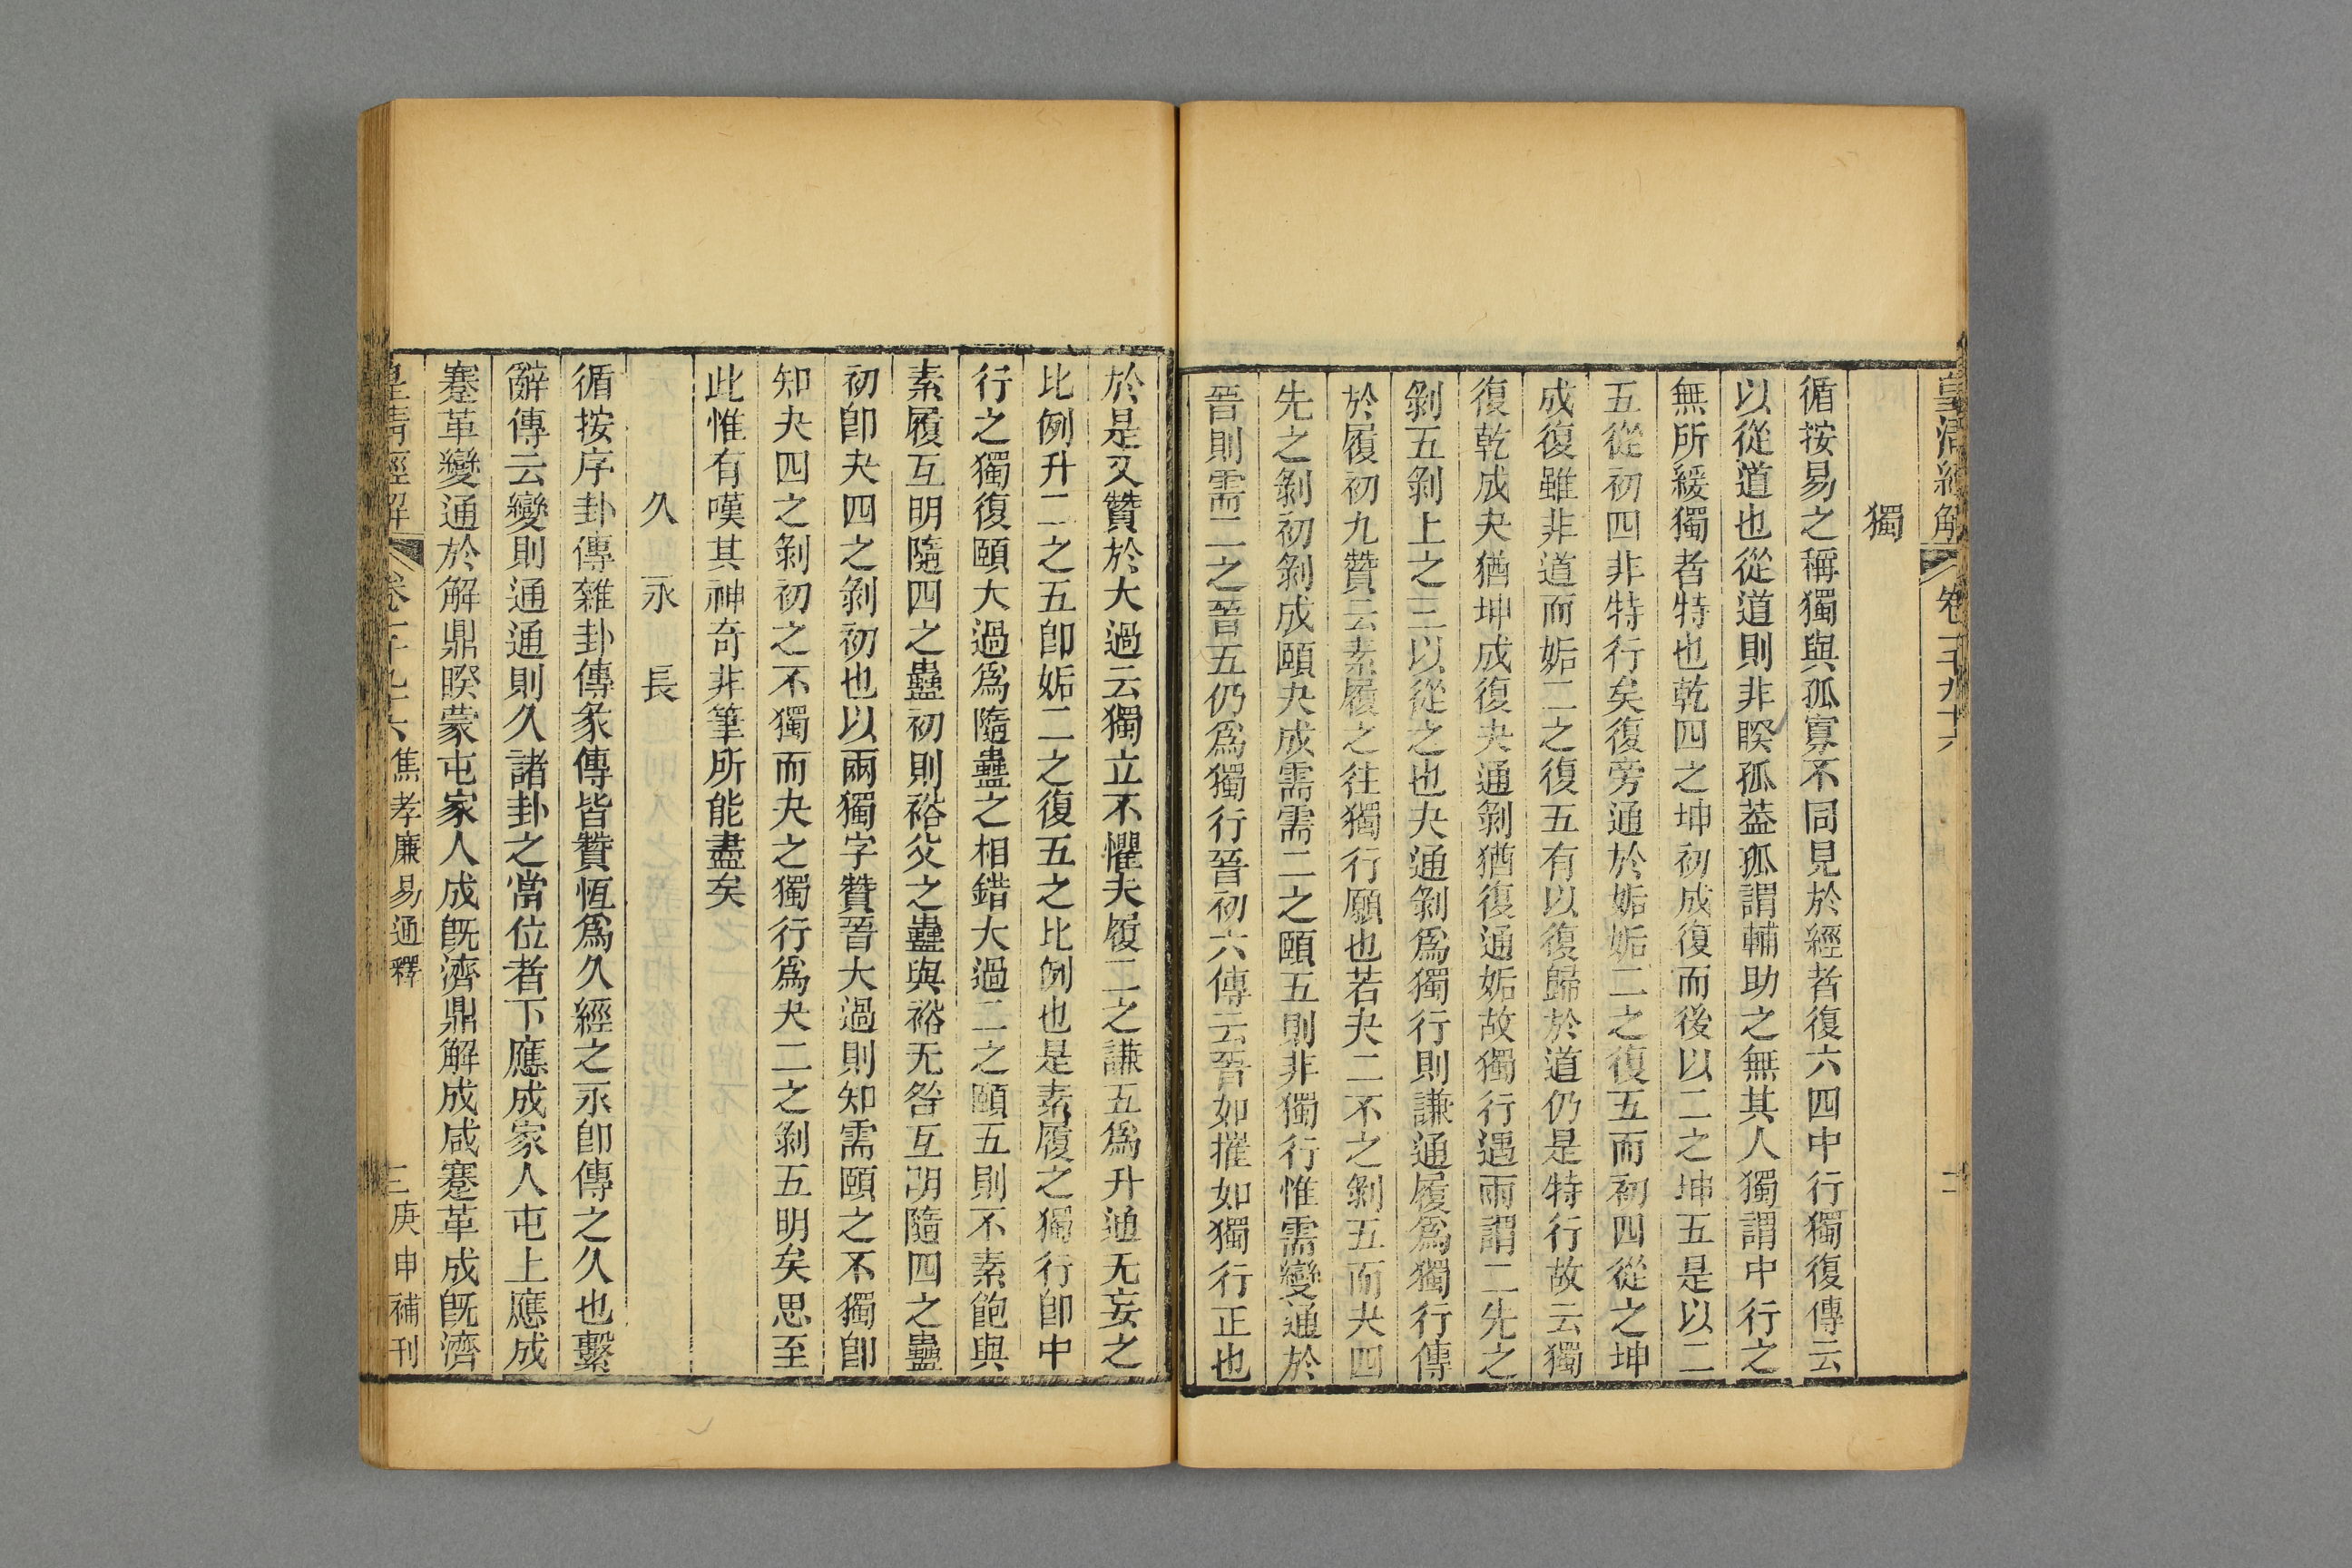 皇清經解 卷一千九十六
獨
循按易之稱獨與孤寡不同見於經者復六四中行獨復傳云
以從道也從道則非睽孤葢孤謂輔助之無其人獨謂中行之
無所緩獨者特也乾四之坤初成復而後以二之坤五是以二
五從初四非特行矣復旁通於姤姤二之復五而初四從之坤
成復雖非道而姤二之復五有以復歸於道仍是特行故云獨
復乾成夬猶坤成復夬通剝猶復通姤故獨行遇雨謂二先之
剝五剝上之三以從之也夬通剝爲獨行則謙通履爲獨行傳
於履初九贊云素履之往獨行願也若夬二不之剝五而夬四
先之剝初剝成頤夬成需需二之頤五則非獨行惟需變通於
晉則需二之晉五仍爲獨行晉初六傳云晉如摧如獨行正也
於是又贊於大過云獨立不懼夫履二之謙五爲升通无妄之
比例升二之五卽姤二之復五之比例也是素履之獨行卽中
行之獨復頤大過爲隨蠱之相錯大過二之頤五則不素飽與
素履互明隨四之蠱初則裕父之蠱與裕无咎互明隨四之蠱
初卽夬四之剝初也以兩獨字贊晉大過則知需頤之不獨卽
知夬四之剝初之不獨而夬之獨行爲夬二之剝五明矣思至
此惟有嘆其神奇非筆所能盡矣
久 永 長
循按序卦傳雜卦傳彖傳皆贊恆爲久經之永卽傳之久也繫
辭傳云變則通通則久諸卦之當位者下應成家人屯上應成
蹇革變通於解鼎睽蒙屯家人成旣濟鼎解成咸蹇革成旣濟
皇清經解 卷一千九十六 焦孝廉易通釋 三 庚申補刊